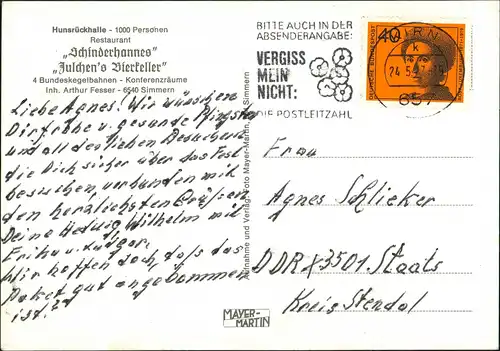 Hunsrückhalle - 1000 Personen
Restaurant
„Schinderhannes”
„Julchen's Bierkeller”
4 Bundeskegelbahnen - Konferenzräume
Inh. Arthur Fesser - 6540 Simmern
Liebe Agnes! Wir wünschen
Dir frohe u. gesunde Pfingsten
und all den lieben Besuchern
die Dich sicher über das Fest
besuchen, verbunden mit
den herzlichsten Grüßen
Deine Hedwig Wilhelm mit
Erika u. Ludger.
Wir hoffen doch, daß das
Paket gut angekommen
ist!?
BITTE AUCH IN DER
ABSENDERANGABE:
VERGISS
MEIN
NICHT:
DIE POSTLEITZAHL
40
DEUTSCHE BUNDESPOST
24.5.
Foto Mayer-Martin, Simmern
MAYER-
MARTIN
Frau
Agnes Schlieker
DDR X 3501 Staats
Kreis Stendal